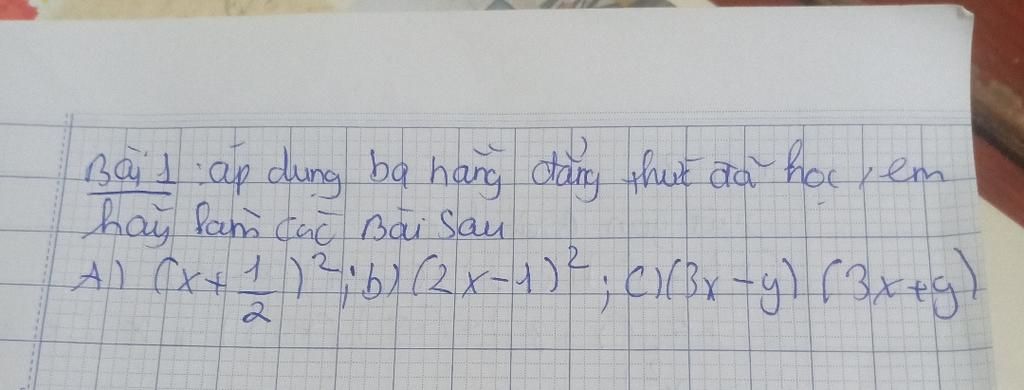 Bài 1 : áp dụng ba hằng đẳng thưt đã học, em
hãy làm các Bài sau
A) (x + 1/2)²; b) (2x - 1)²; c) (3x - y) (3x + y)